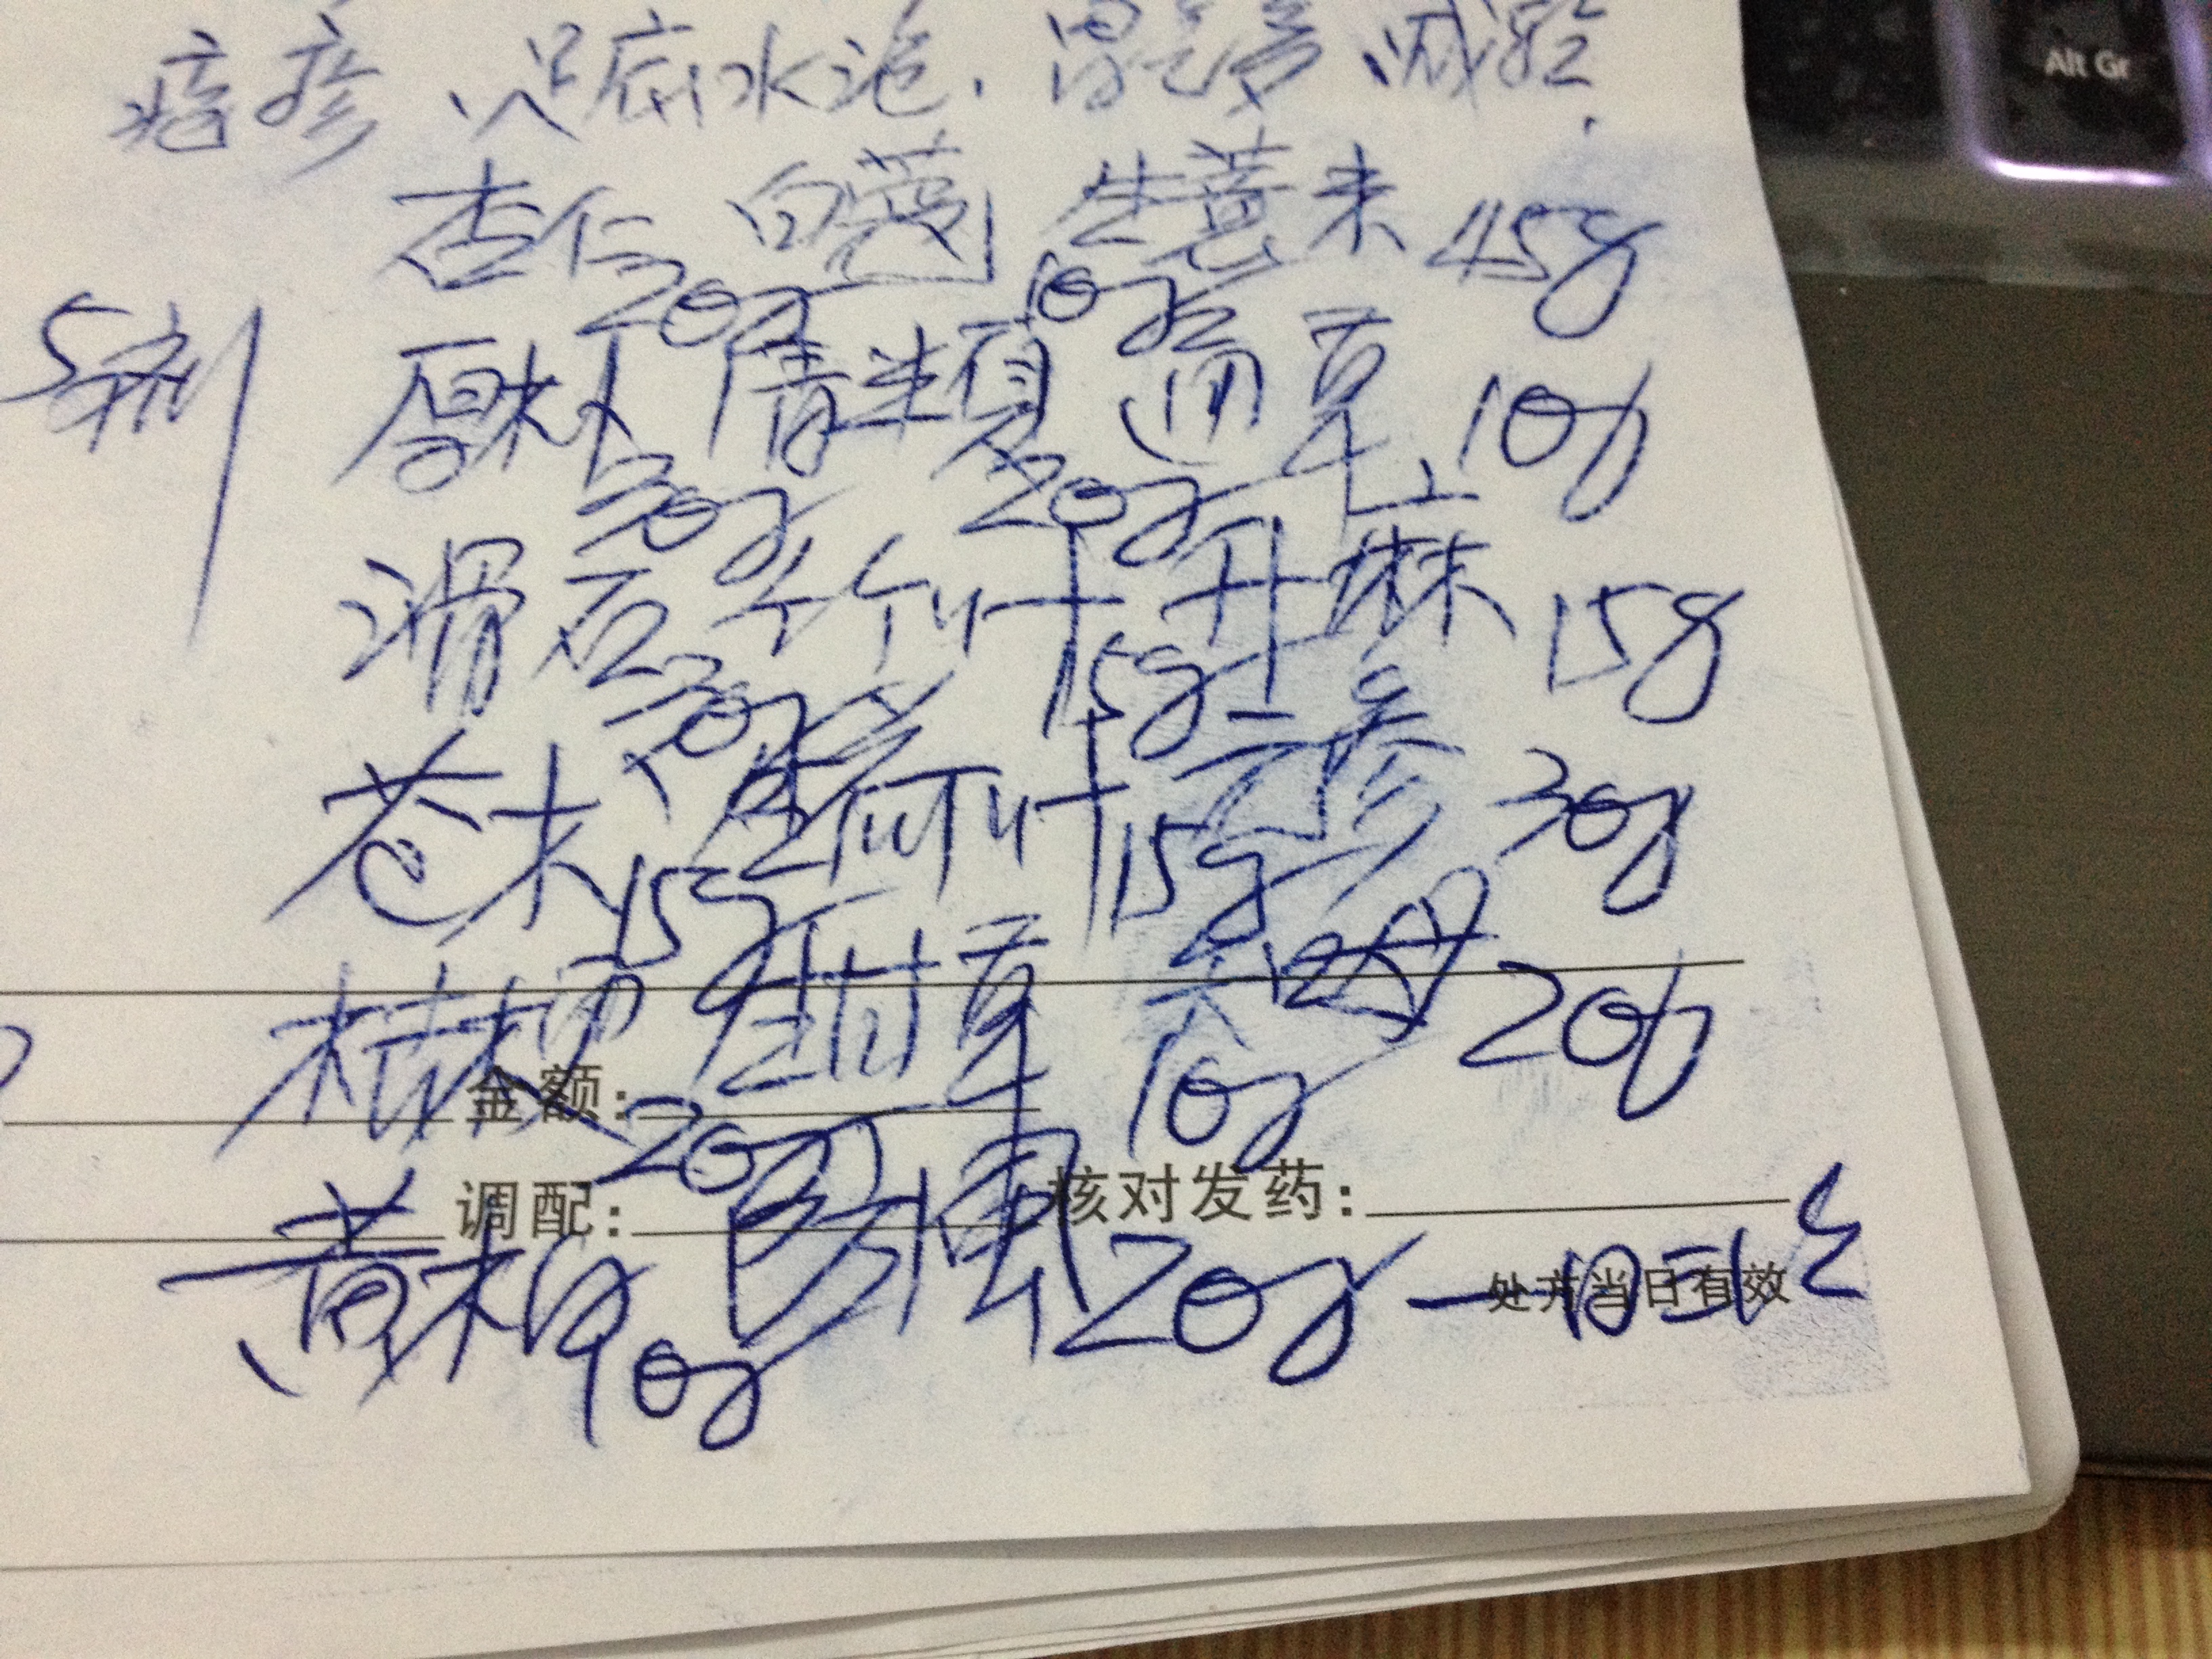 痞疹、足底水泡、胃 减轻.
杏仁20g 白蔻10g 生薏米45g
5剂
厚朴30g 清半夏20g 通草10g
滑石30g 竹叶15g 升麻15g
苍术15g 生荷叶15g 元参30g
桔梗20g 生甘草10g 贝母20g
金额:
调配: 核对发药:
黄柏40g 20g
处方当日有效